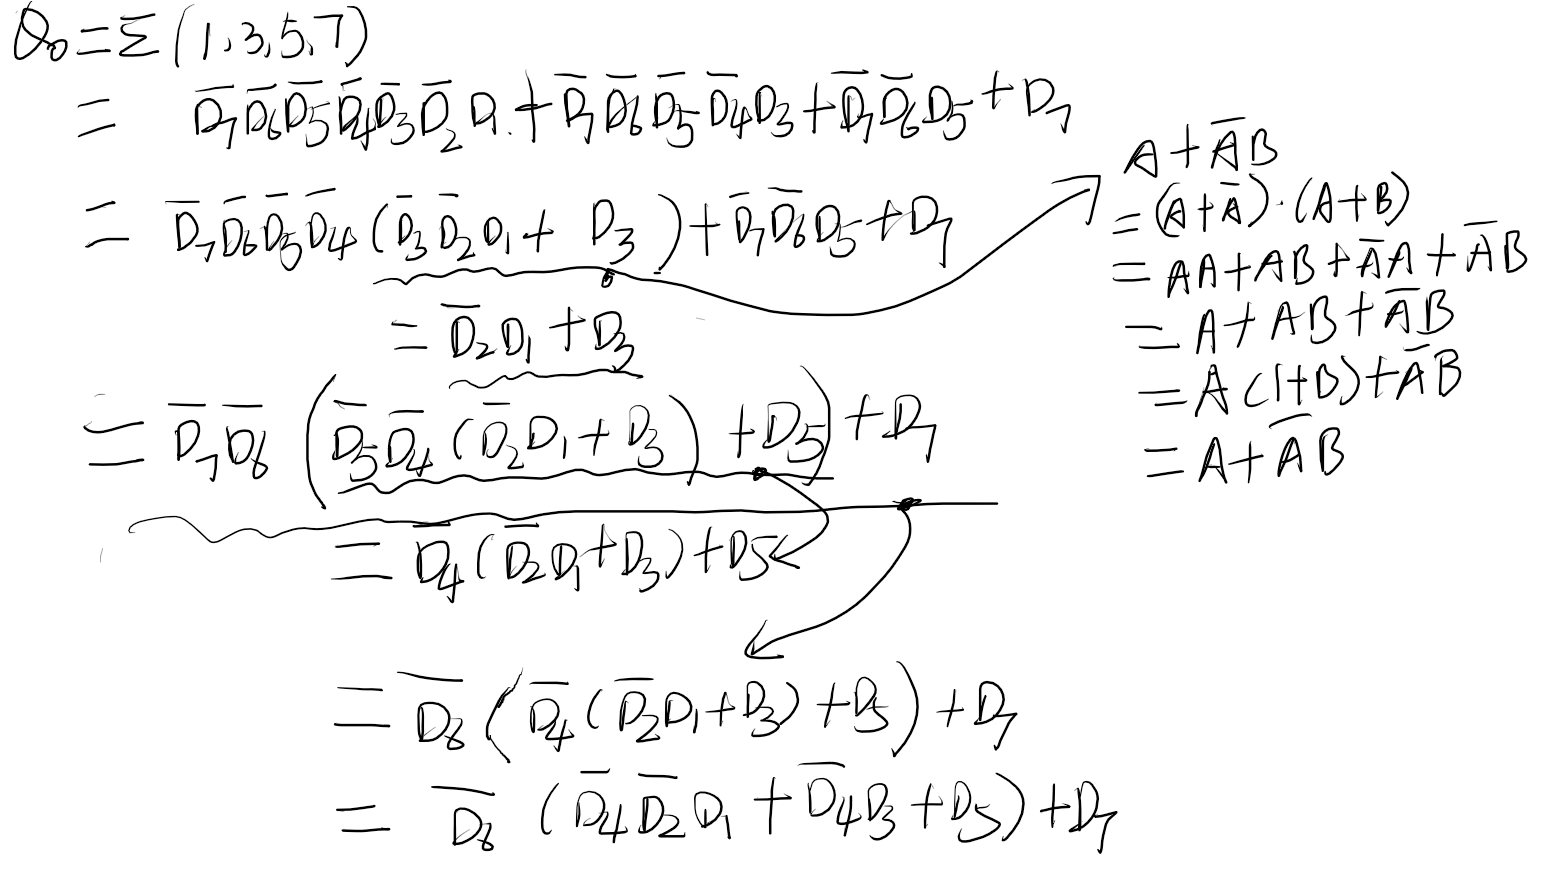 Q₀ = Σ(1,3,5,7)
= D̅₇D̅₆D̅₅D̅₄D̅₃D̅₂D₁ + D̅₇D̅₆D̅₅D̅₄D₃ + D̅₇D̅₆D₅ + D₇
= D̅₇D̅₆D̅₅D̅₄(D̅₃D̅₂D₁ + D₃) + D̅₇D̅₆D₅ + D₇
= D̅₂D₁ + D₃
= D̅₇D̅₈(D̅₅D̅₄(D̅₂D₁ + D₃) + D₅) + D₇
= D̅₄(D̅₂D₁ + D₃) + D₅
= D̅₈(D̅₄(D̅₂D₁ + D₃) + D₅) + D₇
= D̅₈(D̅₄D̅₂D₁ + D̅₄D₃ + D₅) + D₇
A + A̅B
= (A + A̅)·(A + B)
= AA + AB + A̅A + A̅B
= A + AB + A̅B
= A(1+B) + A̅B
= A + A̅B